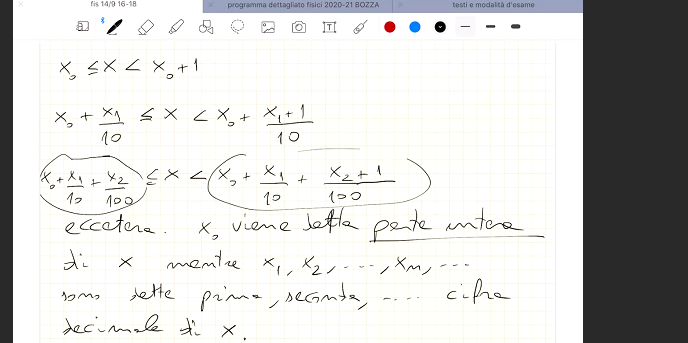 fis 14/9 16-18 programma dettagliato fisici 2020-21 BOZZA testi e modalità d'esame
x₀ ≤ x < x₀ + 1
x₀ + x₁/10 ≤ x < x₀ + (x₁ + 1)/10
x₀ + x₁/10 + x₂/100 ≤ x < x₀ + x₁/10 + (x₂ + 1)/100
eccetera. x₀ viene detta parte intera
di x mentre x₁, x₂, ----, xₙ, ...
sono dette prima, seconda, .... cifra
decimale di x.